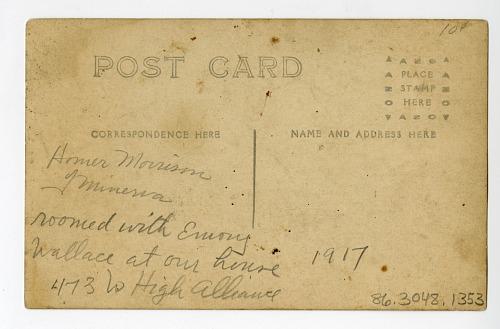 10¢
POST CARD
AZO
PLACE
STAMP
HERE
AZO
CORRESPONDENCE HERE
NAME AND ADDRESS HERE
Homer Morrison
of Minerva
roomed with Emory
Wallace at our house
473 W High Alliance
1917
86.3048.1353